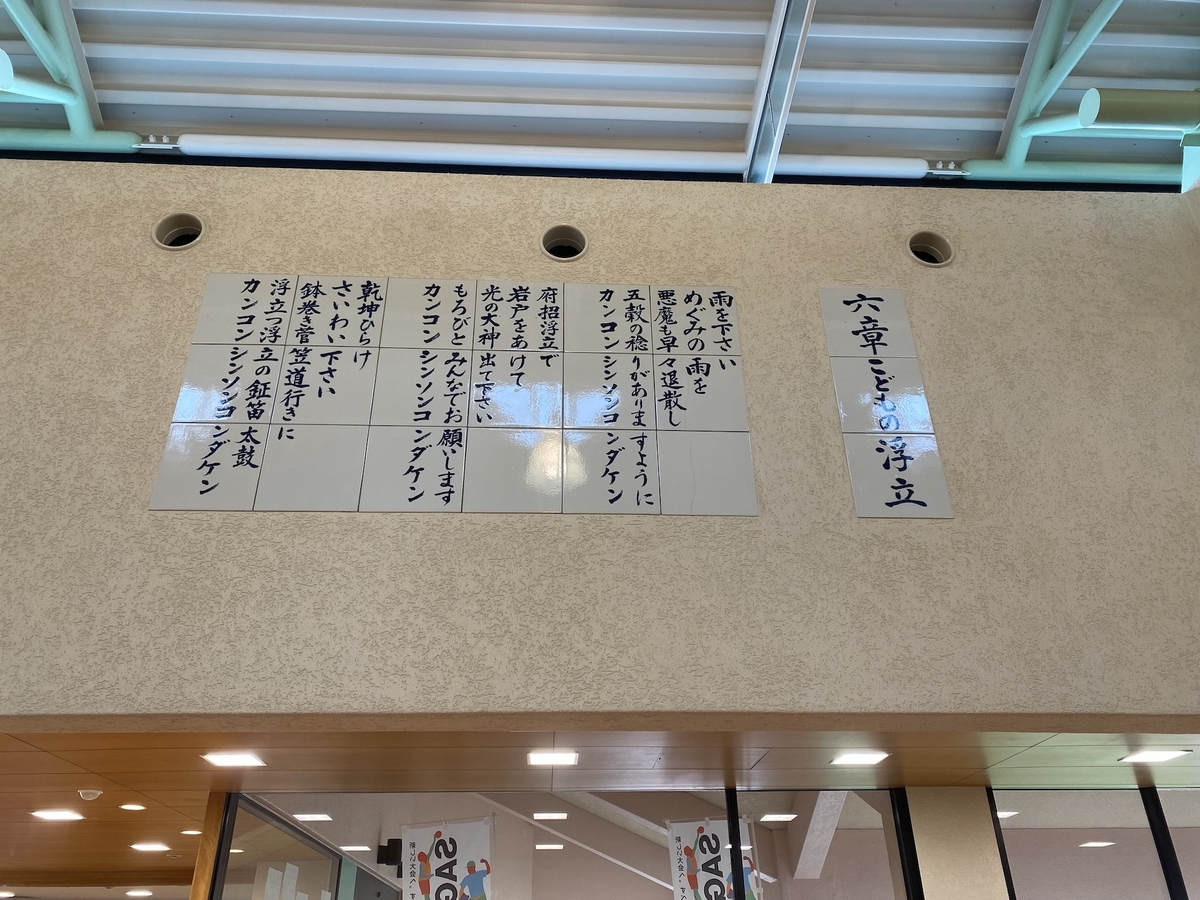 六章こどもの浮立
雨を下さい
めぐみの雨を
悪魔も早々退散し
五穀の稔りがありますように
カンコンシンソンコンダケン
府招浮立で
岩戸をあけて
光の大神出て下さい
もろびとみんなでお願いします
カンコンシンソンコンダケン
乾坤ひらけ
さいわい下さい
鉢巻き菅笠道行きに
浮立つ浮立の鉦笛太鼓
カンコンシンソンコンダケン
SAG
SAG
新しい大会へ。す